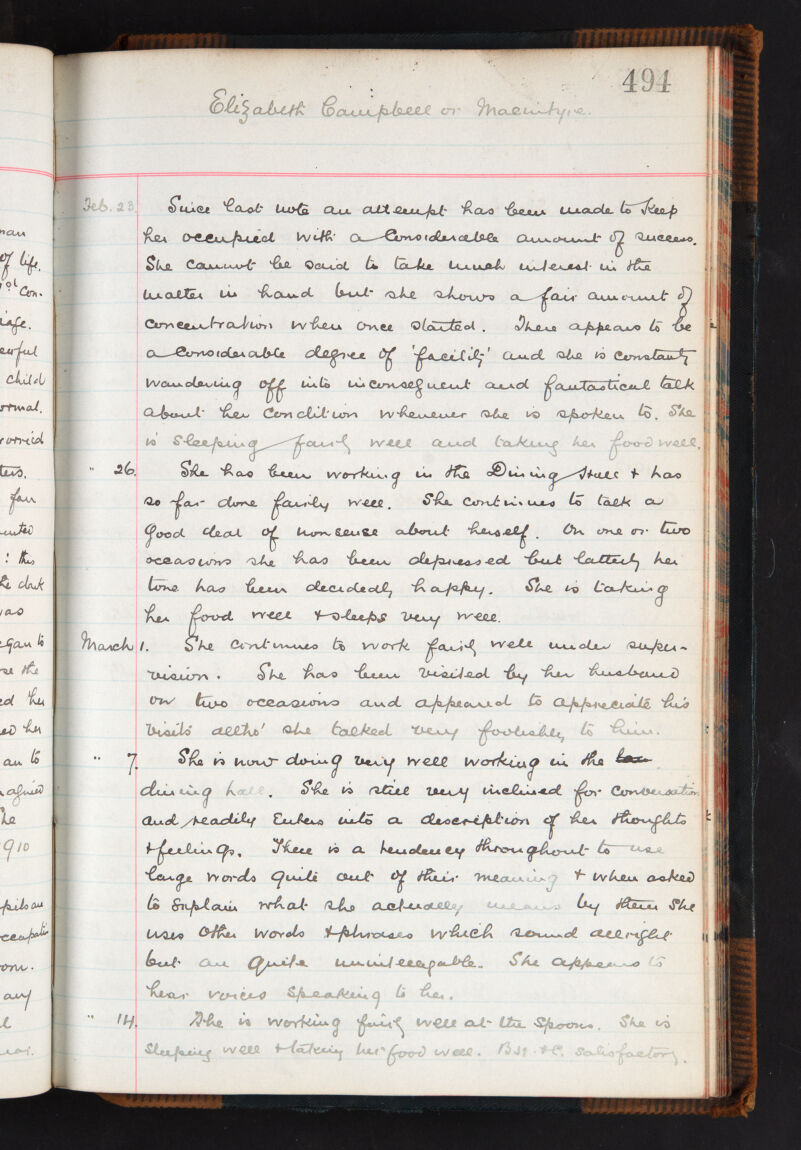 494
Elizabeth Campbell or Macintyre.
Feb. 23. Since last note an attempt has been made to keep
her occupied with a considerable amount of success.
She cannot be said to take much interest in the
matter in hand but she shows a fair amount of
concentration when once started. There appears to be
a considerable degree of 'facility' and she is constantly
wandering off into inconsequent and fantastical talk
about her condition whenever she is spoken to. She
is sleeping fairly well and taking her food well.
" 26. She has been working in the Dining Hall & has
so far done fairly well. She continues to talk a
good deal of nonsense about herself. On one or two
occasions she has been depressed but latterly her
tone has been decidedly happy. She is taking
her food well & sleeps very well.
March 1. She continues to work fairly well under super-
vision. She has been visited by her husband
on two occasions and appeared to appreciate his
visits altho' she talked very foolishly to him.
" 7. She is now doing very well working in the
dining hall. She is still very inclined for conversation
and readily enters into a description of her thoughts
& feelings. There is a tendency throughout to use
large words quite out of their meaning & when asked
to explain what she actually means by them she
uses other words & phrases which sound allright
but are quite uninteleagable. She appears to
hear voices speaking to her.
" 14. She is working fairly well at the spoons. She is
sleeping well & taking her food well. satisfactory.
man
of life.
Con-
iage.
child
ormal.
worried
ters.
: this
was
egan to
se the
ed her
ed her
an to
she
1910
any